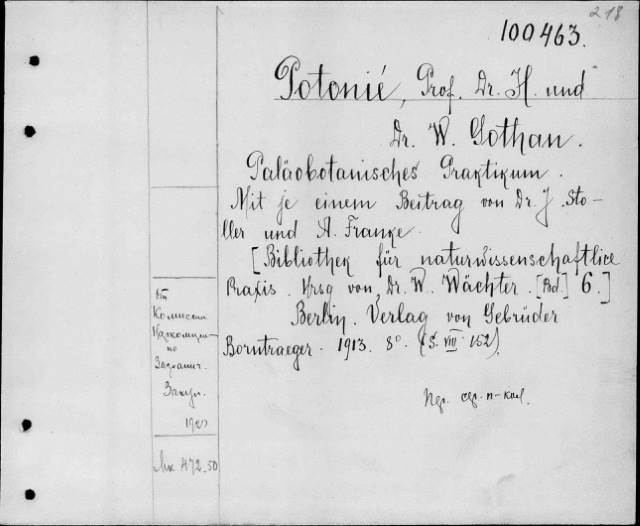 218
100463.
Potonié, Prof. Dr. H. und
Dr. W. Gothan.
Paläobotanisches Praktikum.
Mit je einem Beitrag von Dr. J. Sto-
ller und A. Franke.
[Bibliothek für naturwissenschaftlice
Praxis. Hrsg von Dr. W. Wächter. [Bd.] 6.]
Berlin. Verlag von Gebrüder
Borntraeger. 1913. 8° (S. VIII 152).
От
Комиссии
по
Загранич.
Закуп.
472.50